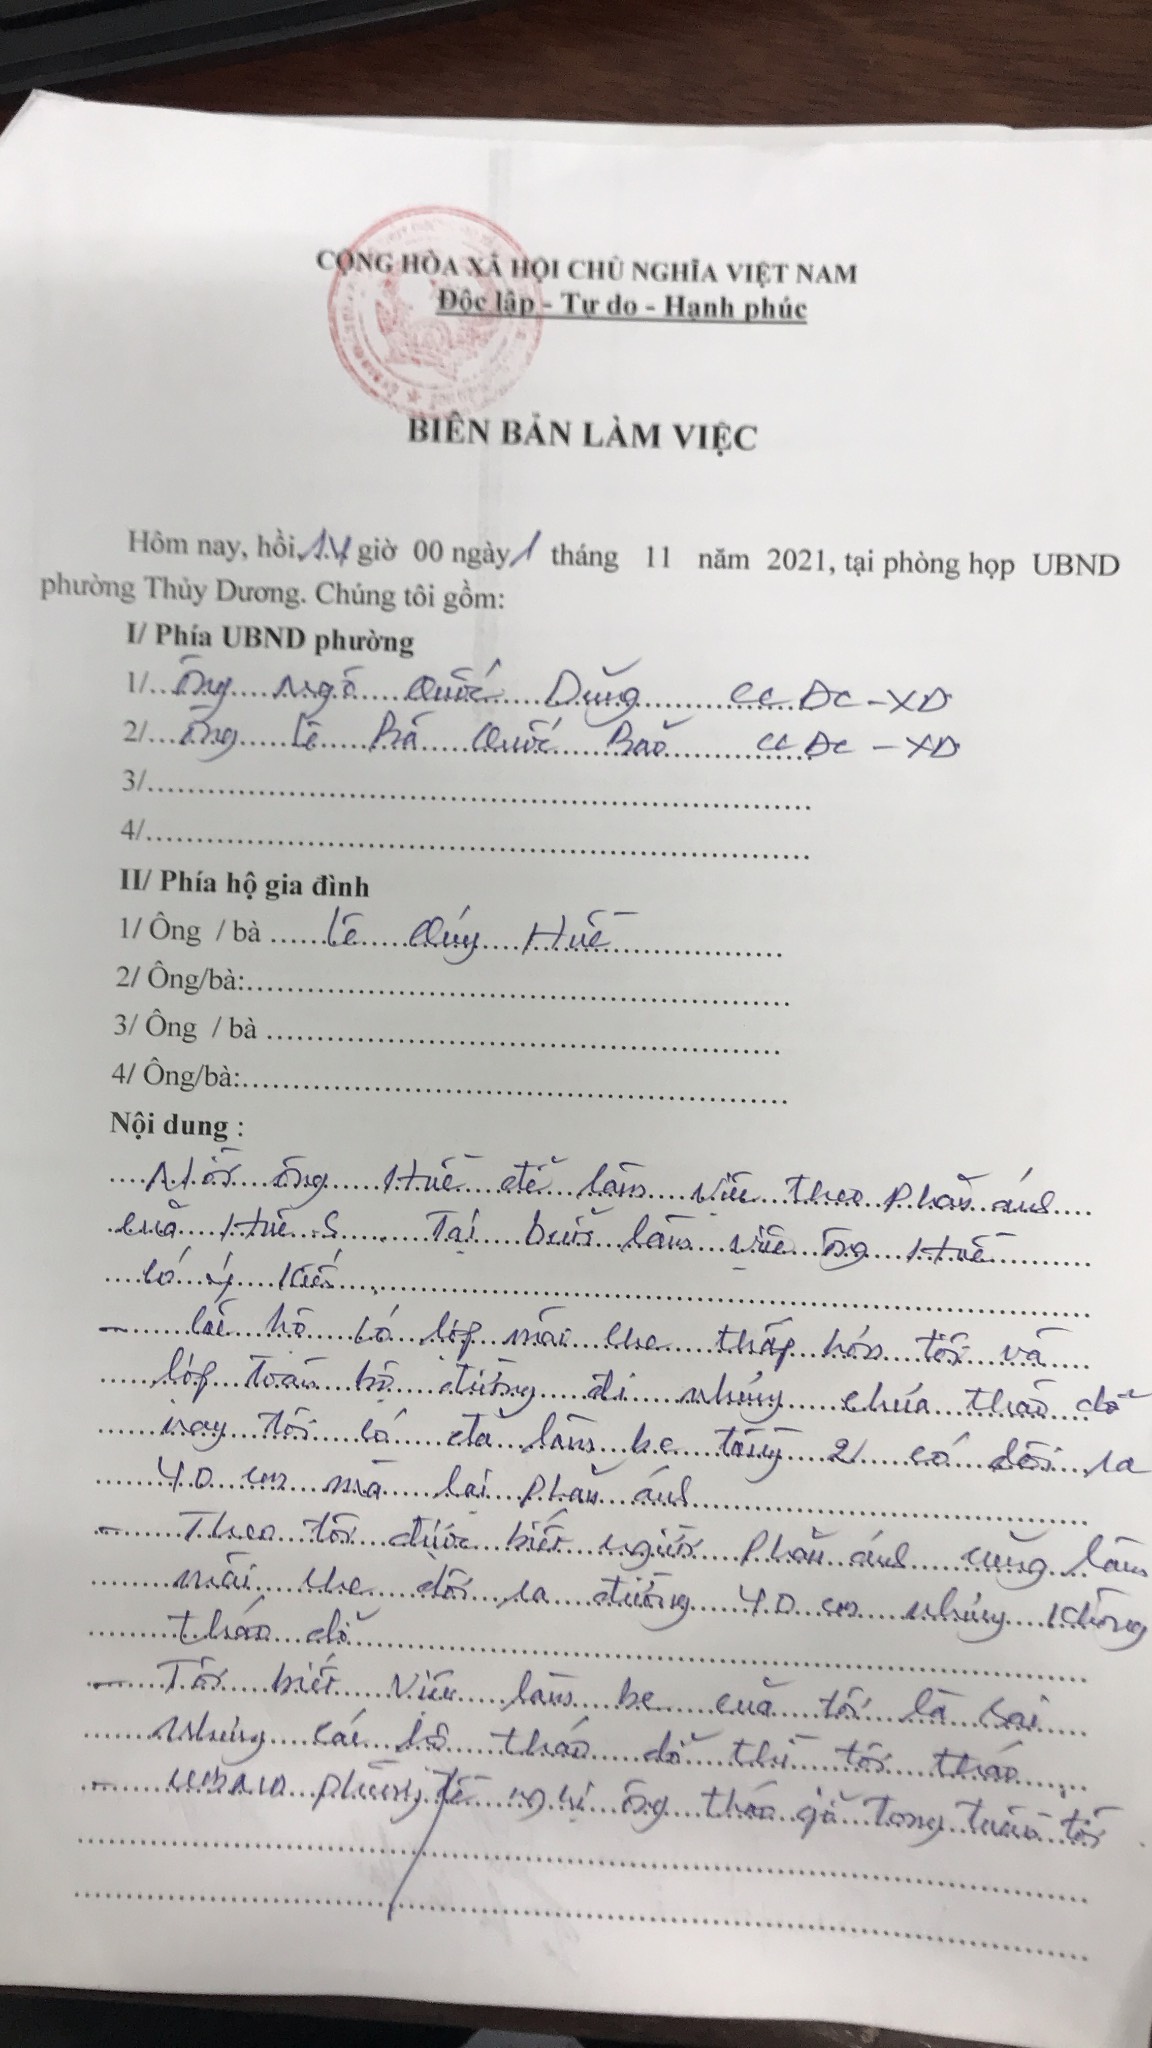 CỘNG HÒA XÃ HỘI CHỦ NGHĨA VIỆT NAM
Độc lập - Tự do - Hạnh phúc
BIÊN BẢN LÀM VIỆC
Hôm nay, hồi 14 giờ 00 ngày 1 tháng 11 năm 2021, tại phòng họp UBND
phường Thủy Dương. Chúng tôi gồm:
I/ Phía UBND phường
1/ Ông Ngô Quốc Dũng CC ĐC - XD
2/ Ông Lê Bá Quốc Bảo CC ĐC - XD
3/
4/
II/ Phía hộ gia đình
1/ Ông / bà Lê Quý Huế
2/ Ông/bà:
3/ Ông / bà
4/ Ông/bà:
Nội dung :
Mời ông Huế để làm việc theo phản ánh
của Huế S. Tại buổi làm việc ông Huế
có ý kiến
- Các hộ có lợp mái che thấp hơn tôi và
lợp toàn bộ đường đi nhưng chưa tháo dỡ
nay tôi có đà làm be tầng 2 có dôi ra
40 cm mà lại phản ánh
- Theo tôi được biết người phản ánh cũng làm
mái che dôi ra đường 40 cm nhưng không
tháo dỡ
- Tôi biết việc làm be của tôi là sai
nhưng các hộ tháo dỡ thì tôi tháo
- UBND phường đề nghị ông tháo gỡ trong tuần tới